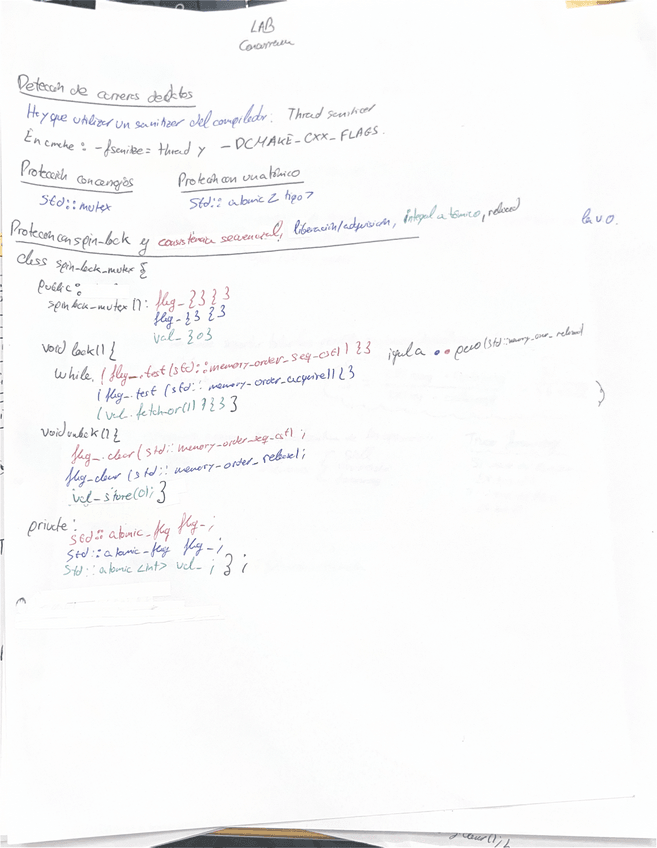 LAB
Concurrencia
Detección de carreras de datos
Hay que utilizar un sanitizer del compilador. Thread sanitizer
En cmake: -fsanitize= thread y -DCMAKE_CXX_FLAGS.
Protección con cerrojos Protección con un atómico
std::mutex std::atomic < tipo >
Protección con spin-lock y consistencia secuencial, liberación/adquisición, integral atómico, relaxed
class spin_lock_mutex {
public:
spin_lock_mutex(): flag_{}{}
flag_{} {}
val_{0}
void lock() {
while (flag_.test(std::memory_order_seq_cst)) {} igual a •• pero (std::memory_order_relaxed
(flag_.test (std::memory_order_acquire)) {} )
(val.fetch_or(1)) {}}
void unlock() {
flag_.clear(std::memory_order_seq_cst);
flag_clear (std::memory_order_release);
val_store(0); }
private:
std::atomic_flag flag_;
std::atomic_flag flag_;
std::atomic <int> val_; } ;
clear();